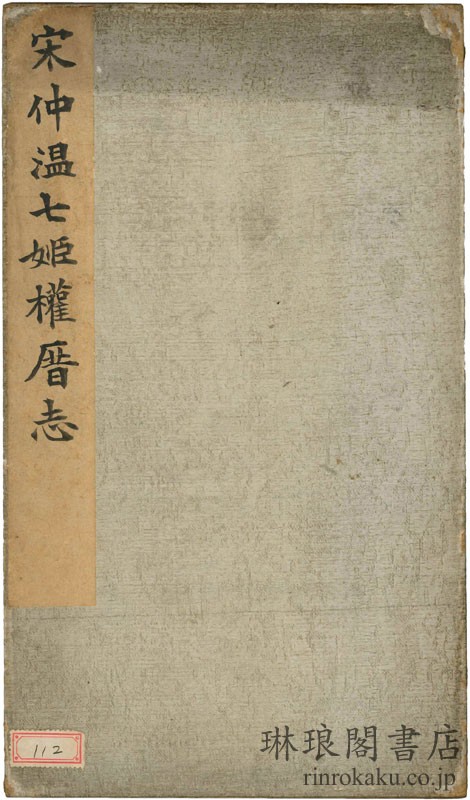 宋仲温七姫權厝志
112
琳琅閣書店
rinrokaku.co.jp